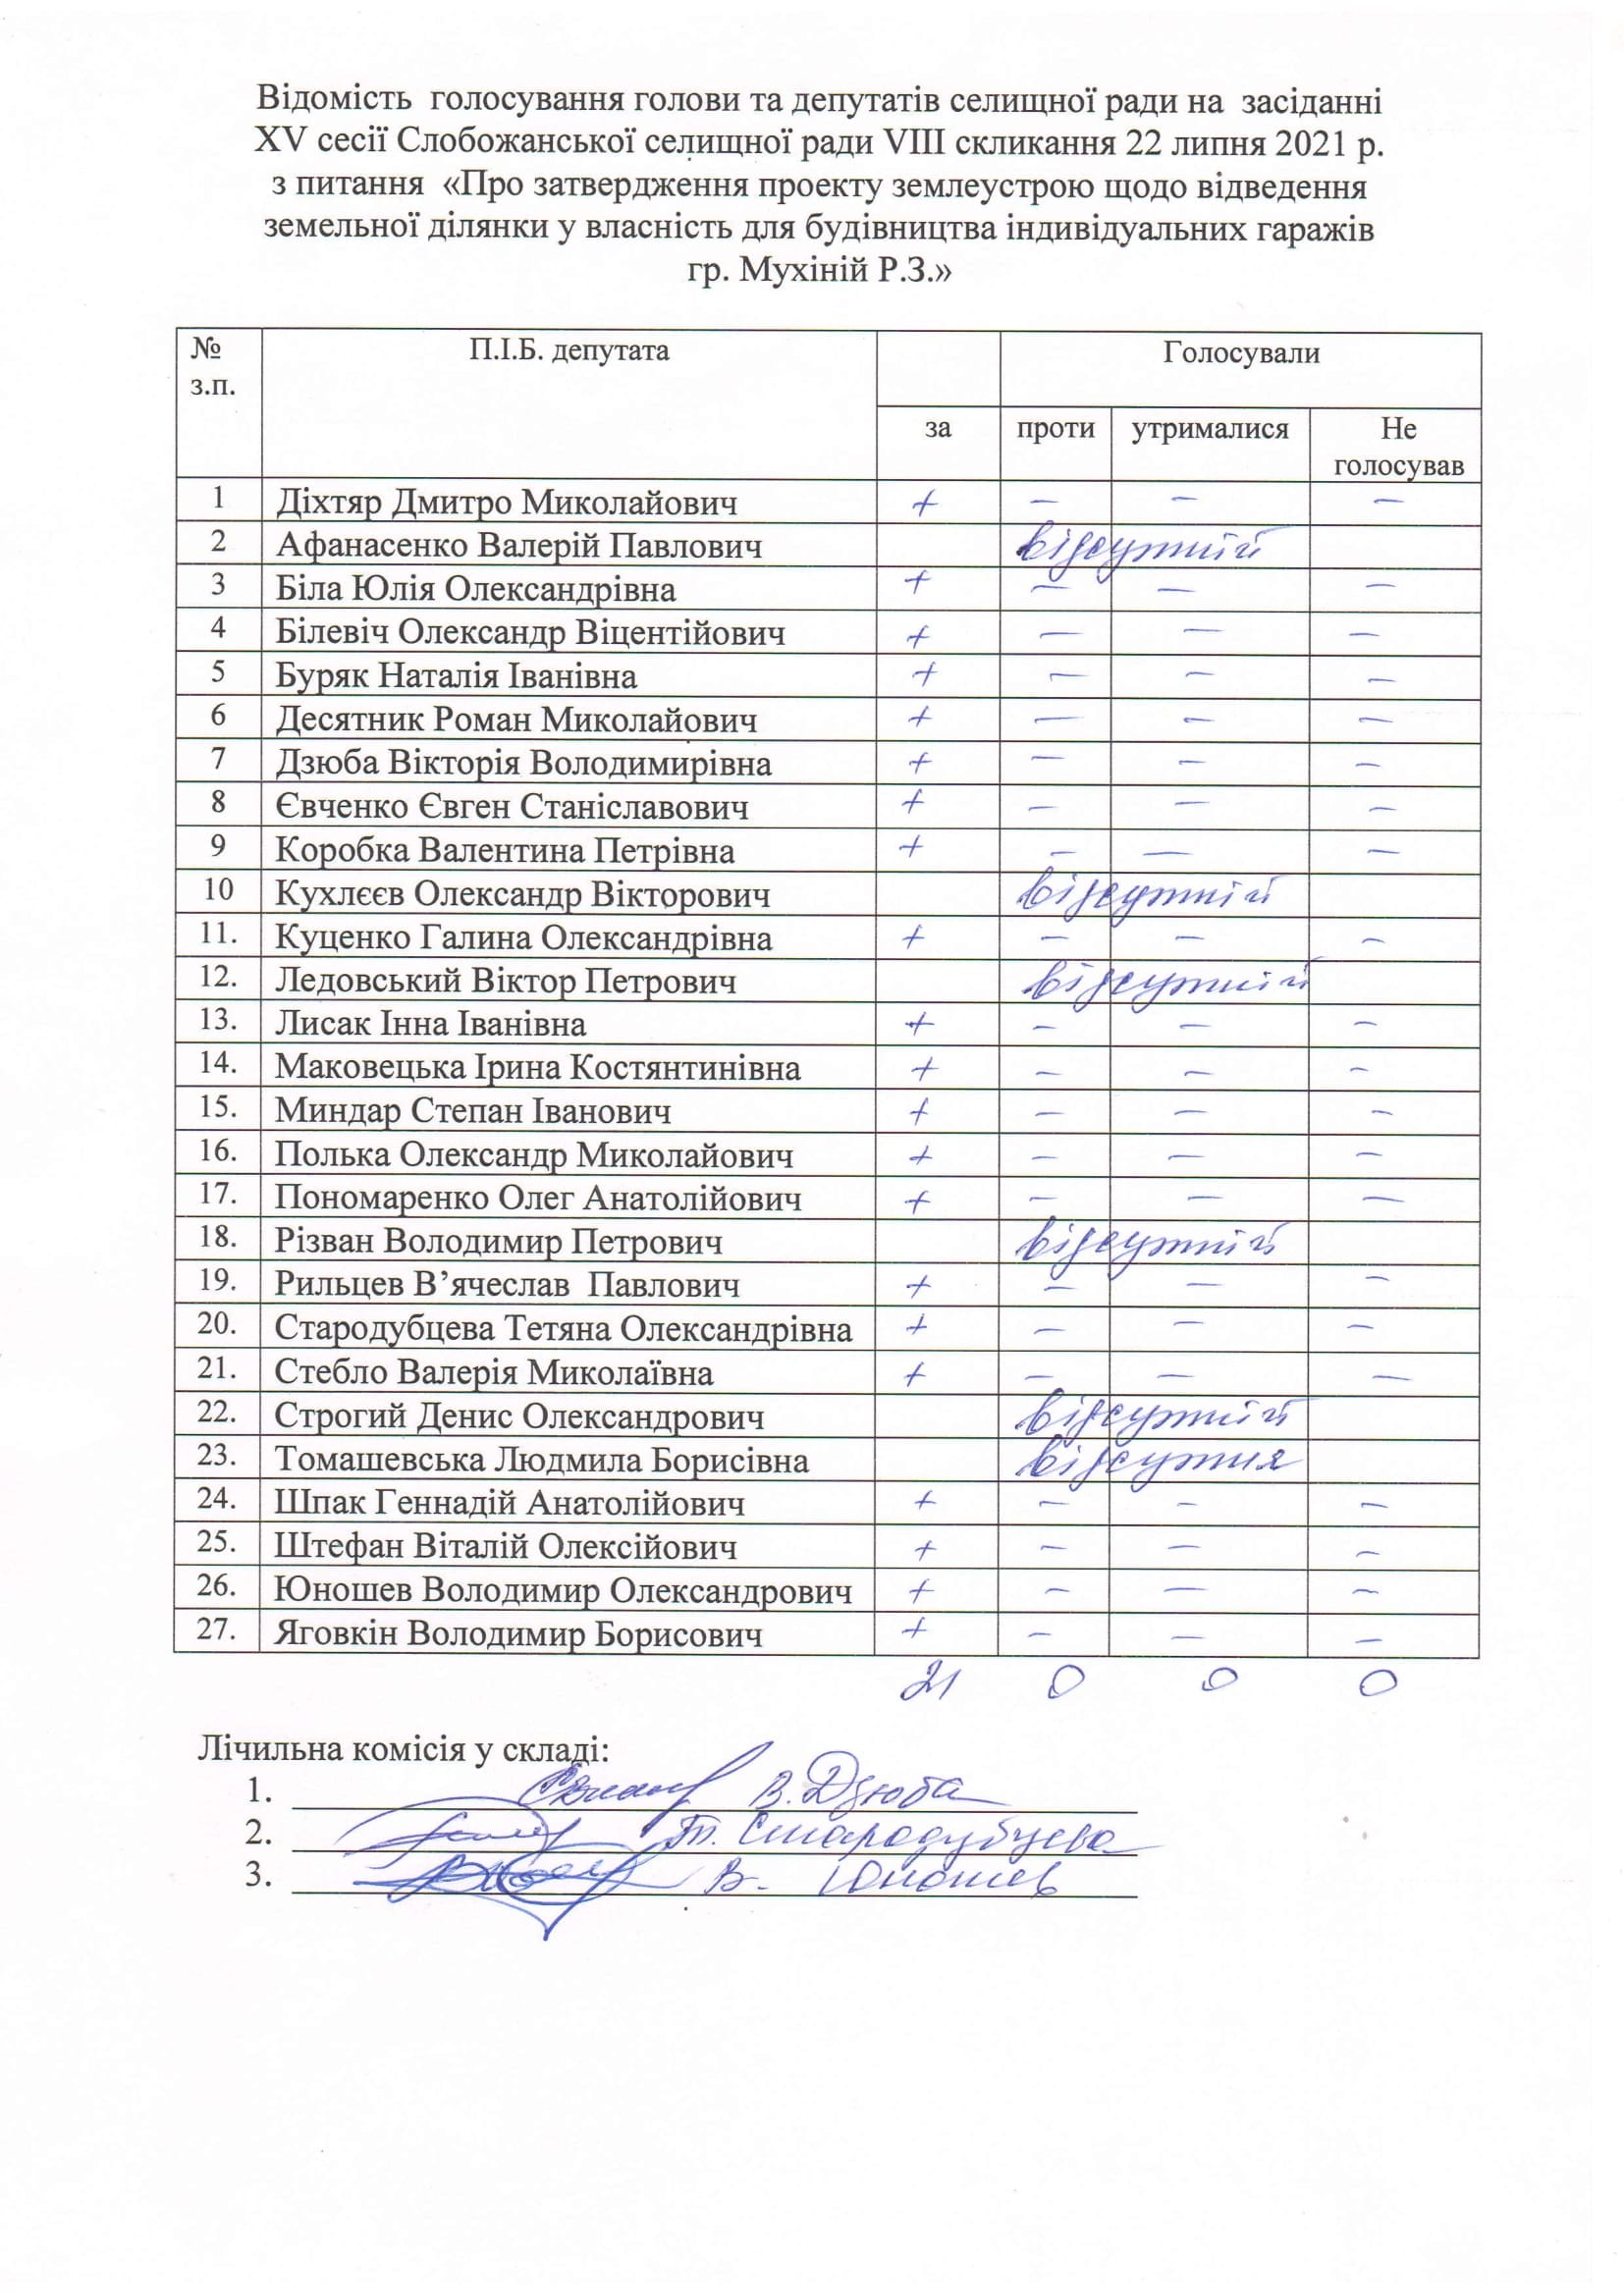 Відомість голосування голови та депутатів селищної ради на засіданні
XV сесії Слобожанської селищної ради VIII скликання 22 липня 2021 р.
з питання «Про затвердження проекту землеустрою щодо відведення
земельної ділянки у власність для будівництва індивідуальних гаражів
гр. Мухіній Р.З.»
№ з.п. П.І.Б. депутата Голосували
за проти утрималися Не голосував
1 Діхтяр Дмитро Миколайович + – – –
2 Афанасенко Валерій Павлович відсутній
3 Біла Юлія Олександрівна + – – –
4 Білевіч Олександр Віцентійович + – – –
5 Буряк Наталія Іванівна + – – –
6 Десятник Роман Миколайович + – – –
7 Дзюба Вікторія Володимирівна + – – –
8 Євченко Євген Станіславович + – – –
9 Коробка Валентина Петрівна + – – –
10 Кухлєєв Олександр Вікторович відсутній
11. Куценко Галина Олександрівна + – – –
12. Ледовський Віктор Петрович відсутній
13. Лисак Інна Іванівна + – – –
14. Маковецька Ірина Костянтинівна + – – –
15. Миндар Степан Іванович + – – –
16. Полька Олександр Миколайович + – – –
17. Пономаренко Олег Анатолійович + – – –
18. Різван Володимир Петрович відсутній
19. Рильцев В’ячеслав Павлович + – – –
20. Стародубцева Тетяна Олександрівна + – – –
21. Стебло Валерія Миколаївна + – – –
22. Строгий Денис Олександрович відсутній
23. Томашевська Людмила Борисівна відсутня
24. Шпак Геннадій Анатолійович + – – –
25. Штефан Віталій Олексійович + – – –
26. Юношев Володимир Олександрович + – – –
27. Яговкін Володимир Борисович + – – –
21 0 0 0
Лічильна комісія у складі:
1. В. Дзюба
2. Т. Стародубцева
3. В. Юношев